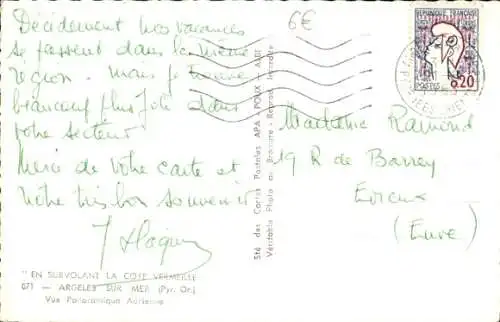 Décidement nos vacances
se passent dans la même
région - mais je trouve
beaucoup plus joli dans
votre secteur.
Merci de votre carte et
notre très bon souvenir
6€
REPUBLIQUE FRANÇAISE
POSTES
0,20
Madame Ramond
19 R de Barrey
Evreux
(Eure)
Sté des Cartes Postales APA - POUX - ALBI
Véritable Photo au Bromure - Reprod. Interdite
"EN SURVOLANT LA COTE VERMEILLE
071 — ARGELES SUR MER (Pyr. Or.)
Vue Panoramique Aérienne